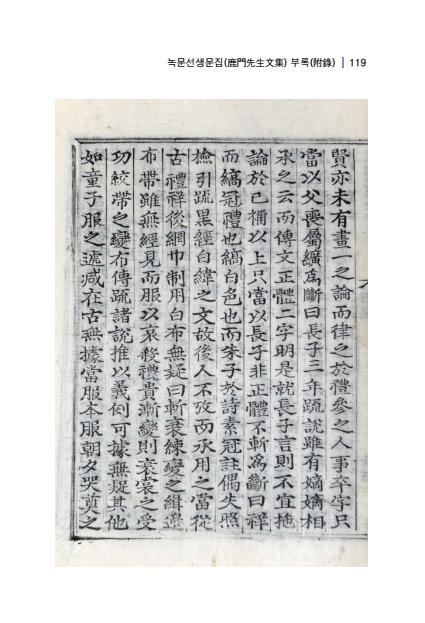 녹문선생문집(鹿門先生文集) 부록(附錄) | 119
賢亦未有畫一之論而律之於禮參之人事卒字只
當以父喪屬纊爲斷曰長子三年疏說雖有嫡嫡相
承之云而傳文正體二字明是就長子言則不宜拖
論於已禰以上只當以長子非正體不斬爲斷曰祥
而縞冠禮也縞白色也而朱子於詩素冠註偶失照
檢引疏黑經白緯之文故後人不攷而承用之當從
古禮祥後網巾制用白布無疑曰斬衰練變之緝邊
布帶雖無經見而服以哀殺禮貴漸變則衰裳之受
功絞帶之變布傳疏諸說推以義例可據無疑其他
如童子服之遞减在古無據當服本服朝夕哭奠之